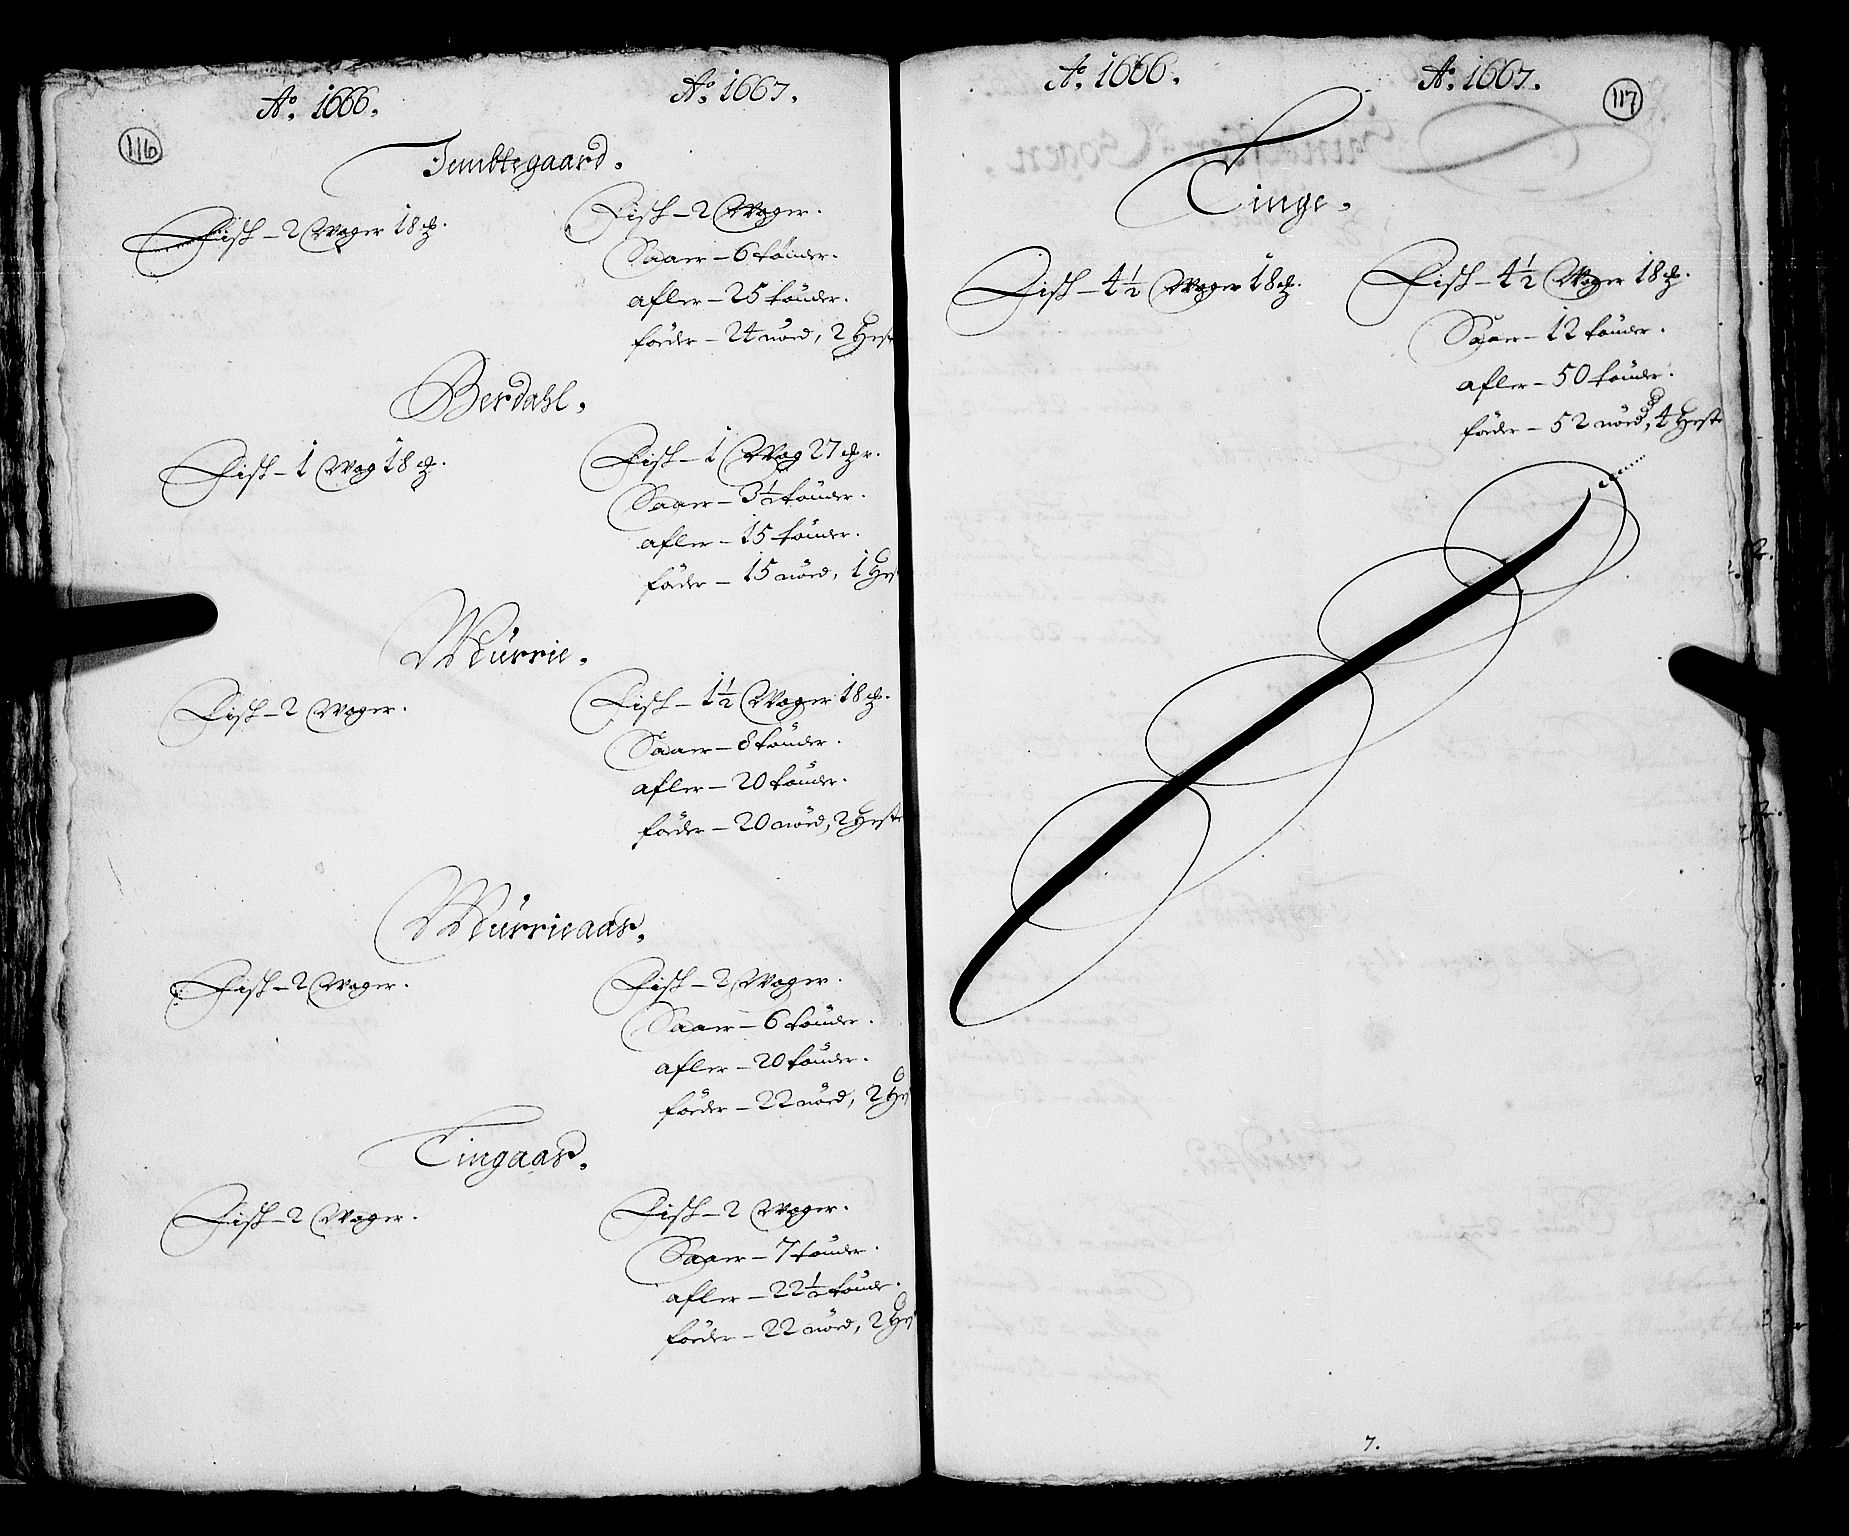 116
Ao. 1666. Ao. 1667.
Temblegaard.
Fisk – 2 Woger 18 ℔. Fisk – 2 Woger.
Saaer – 6 tönder.
afler – 25 tönder.
föeder – 24 nöed, 2 Heste
Berdahl.
Fisk – 1 Wog 18 ℔. Fisk – 1 Wog 27 ℔r.
Saaer – 3½ tönder.
afler – 15 tönder.
föeder – 15 nöed, 1 Hes
Murrie.
Fisk – 2 Woger. Fisk – 1½ Woger 18 ℔.
Saaer – 8 tönder.
afler – 20 tönder.
föeder – 20 nöed, 2 Heste
Murrieaas.
Fisk – 2 Woger. Fisk – 2 Woger.
Saaer – 6 tönder.
afler – 20 tönder.
föeder – 22 nöed, 2 Hes
Tingaas.
Fisk – 2 Woger. Fisk – 2 Woger.
Saaer – 7 tönder.
afler – 22½ tönde.
föeder – 22 nöed, 2 Hes
117
Ao. 1666. Ao. 1667.
Tinge.
Fisk – 4½ Woger 18 ℔. Fisk – 4½ Woger 18 ℔.
Saaer – 12 tönder.
afler – 50 tönder.
föder – 52 nöed, 4 Heste
7.